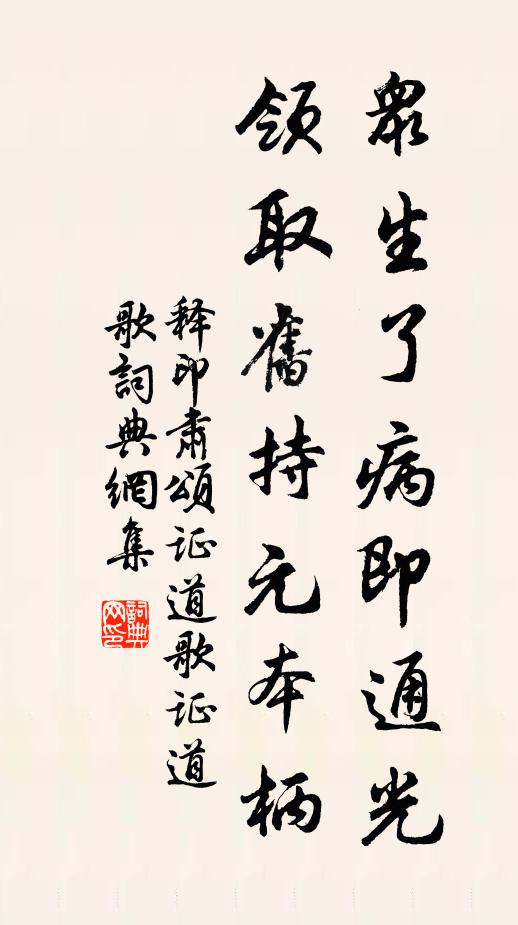 衆生了病即通光
領取舊持元本柄
释印肃頌证道歌证道
歌詞典網集
詞典
网印